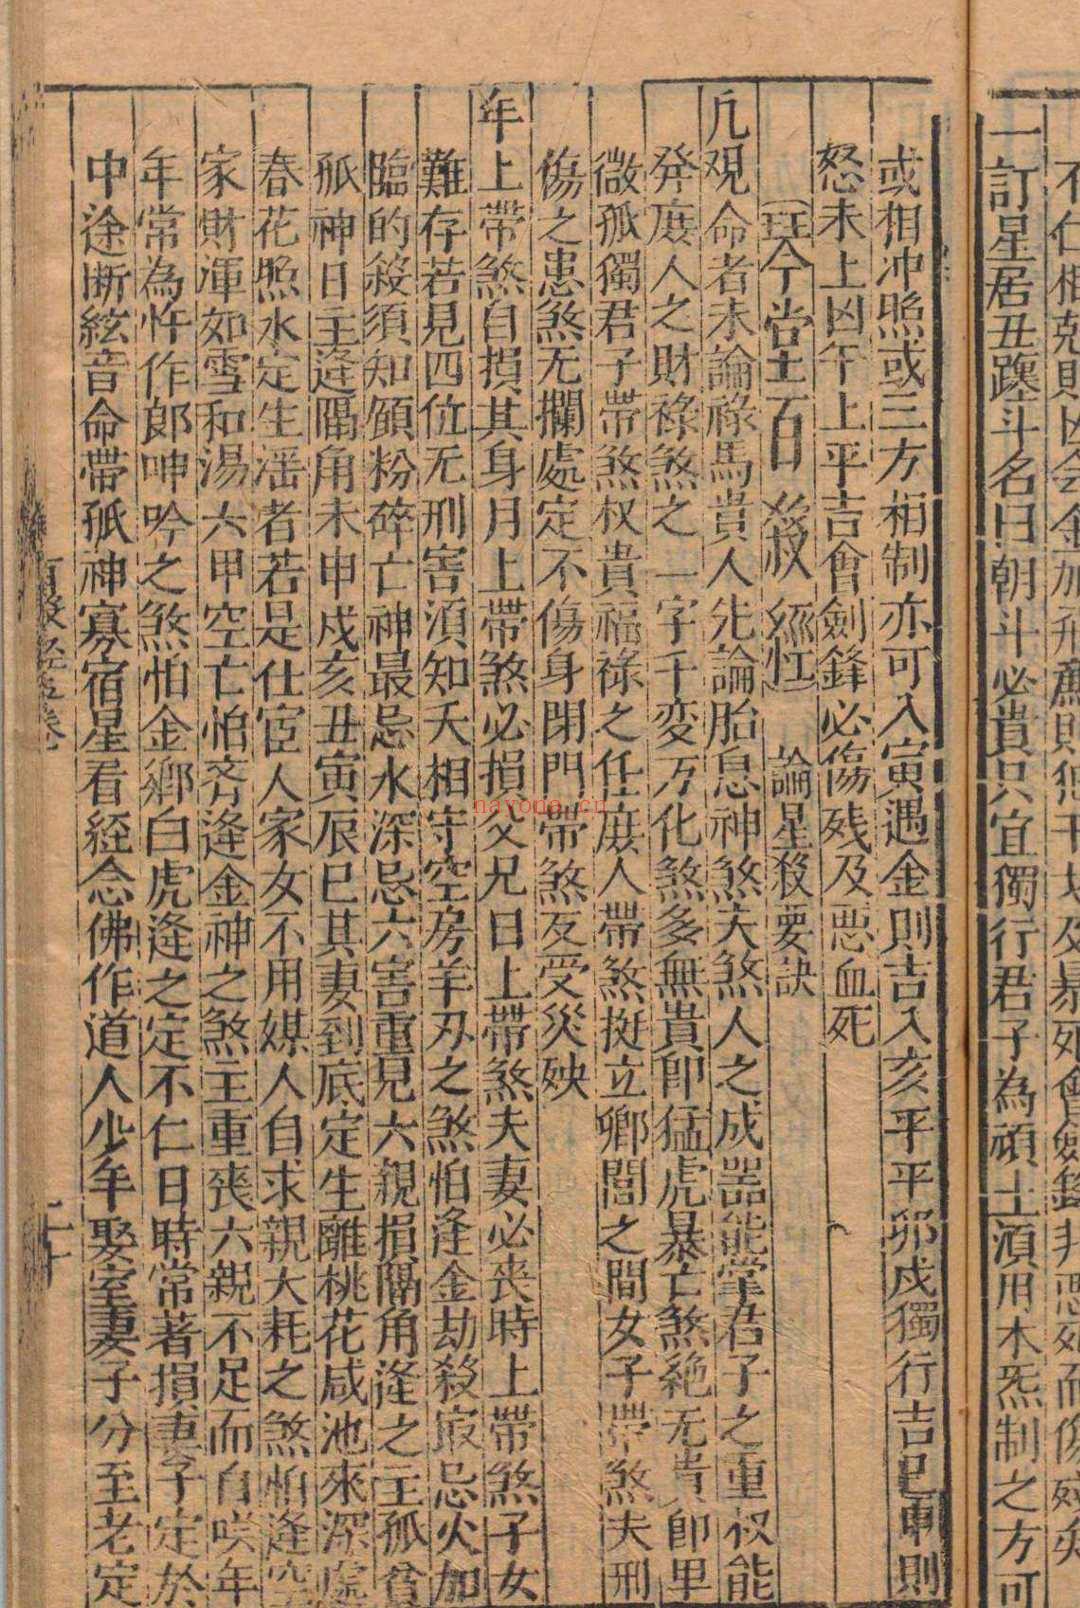 不仁相尅則凶会金加刑
一訂星居丑躔斗名曰朝斗必貴只宜獨行君子為碩士湏用木炁制之方可
或相冲照或三方相制亦可入寅遇金則吉入亥平平卯戌獨行吉巳申則
怒未上凶午上平吉會劍鋒必傷残及惡血死
琴堂百殺經 論星殺要訣
凢覌命者未論祿馬貴人先論胎息神煞夫煞人之成噐能掌君子之重权能
発庻人之財祿煞之一字千变万化煞多無貴即猛虎暴亡煞絶无貴即里
微孤獨君子帶煞权貴福祿之任庻人帶煞挺立鄉閭之間女子帶煞夫刑
傷之患煞无攔處定不傷身閉門帶煞反受災殃
年上帶煞自損其身月上帶煞必損父兄日上帶煞夫妻必丧時上帶煞子女
難存若見四位无刑害湏知夭相守空房羊刃之煞怕逢金劫殺㝡忌火加
臨的殺須知顔粉碎亡神最忌水深忌六害重見六親損隔角逢之主孤貧
孤神日主逢隔角未申戌亥丑寅辰巳其妻到底定生離桃花咸池來深處
春花照水定生滛者若是仕宦人家女不用媒人自求親大耗之煞怕逢空
家財渾如雪和湯六甲空亡怕齐逢金神之煞主重喪六親不足而自咲年
年常為忤作郎呻吟之煞怕金鄉白虎逢之定不仁日時常著損妻子定於
中途断絃音命帶孤神寡宿星看経念佛作道人少年娶室妻子分至老定
百殺経五卷
二十
nayona.cn